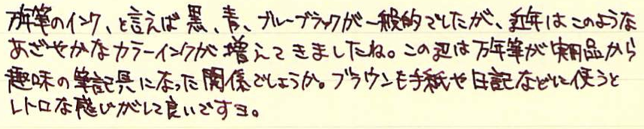 万年筆のインク、と言えば黒、青、ブルーブラックが一般的でしたが、近年はこのような
あざやかなカラーインクが増えてきましたね。この辺は万年筆が実用品から
趣味の筆記具になった関係でしょうか。ブラウンも手紙や日記などに使うと
レトロな感じがして良いですヨ。